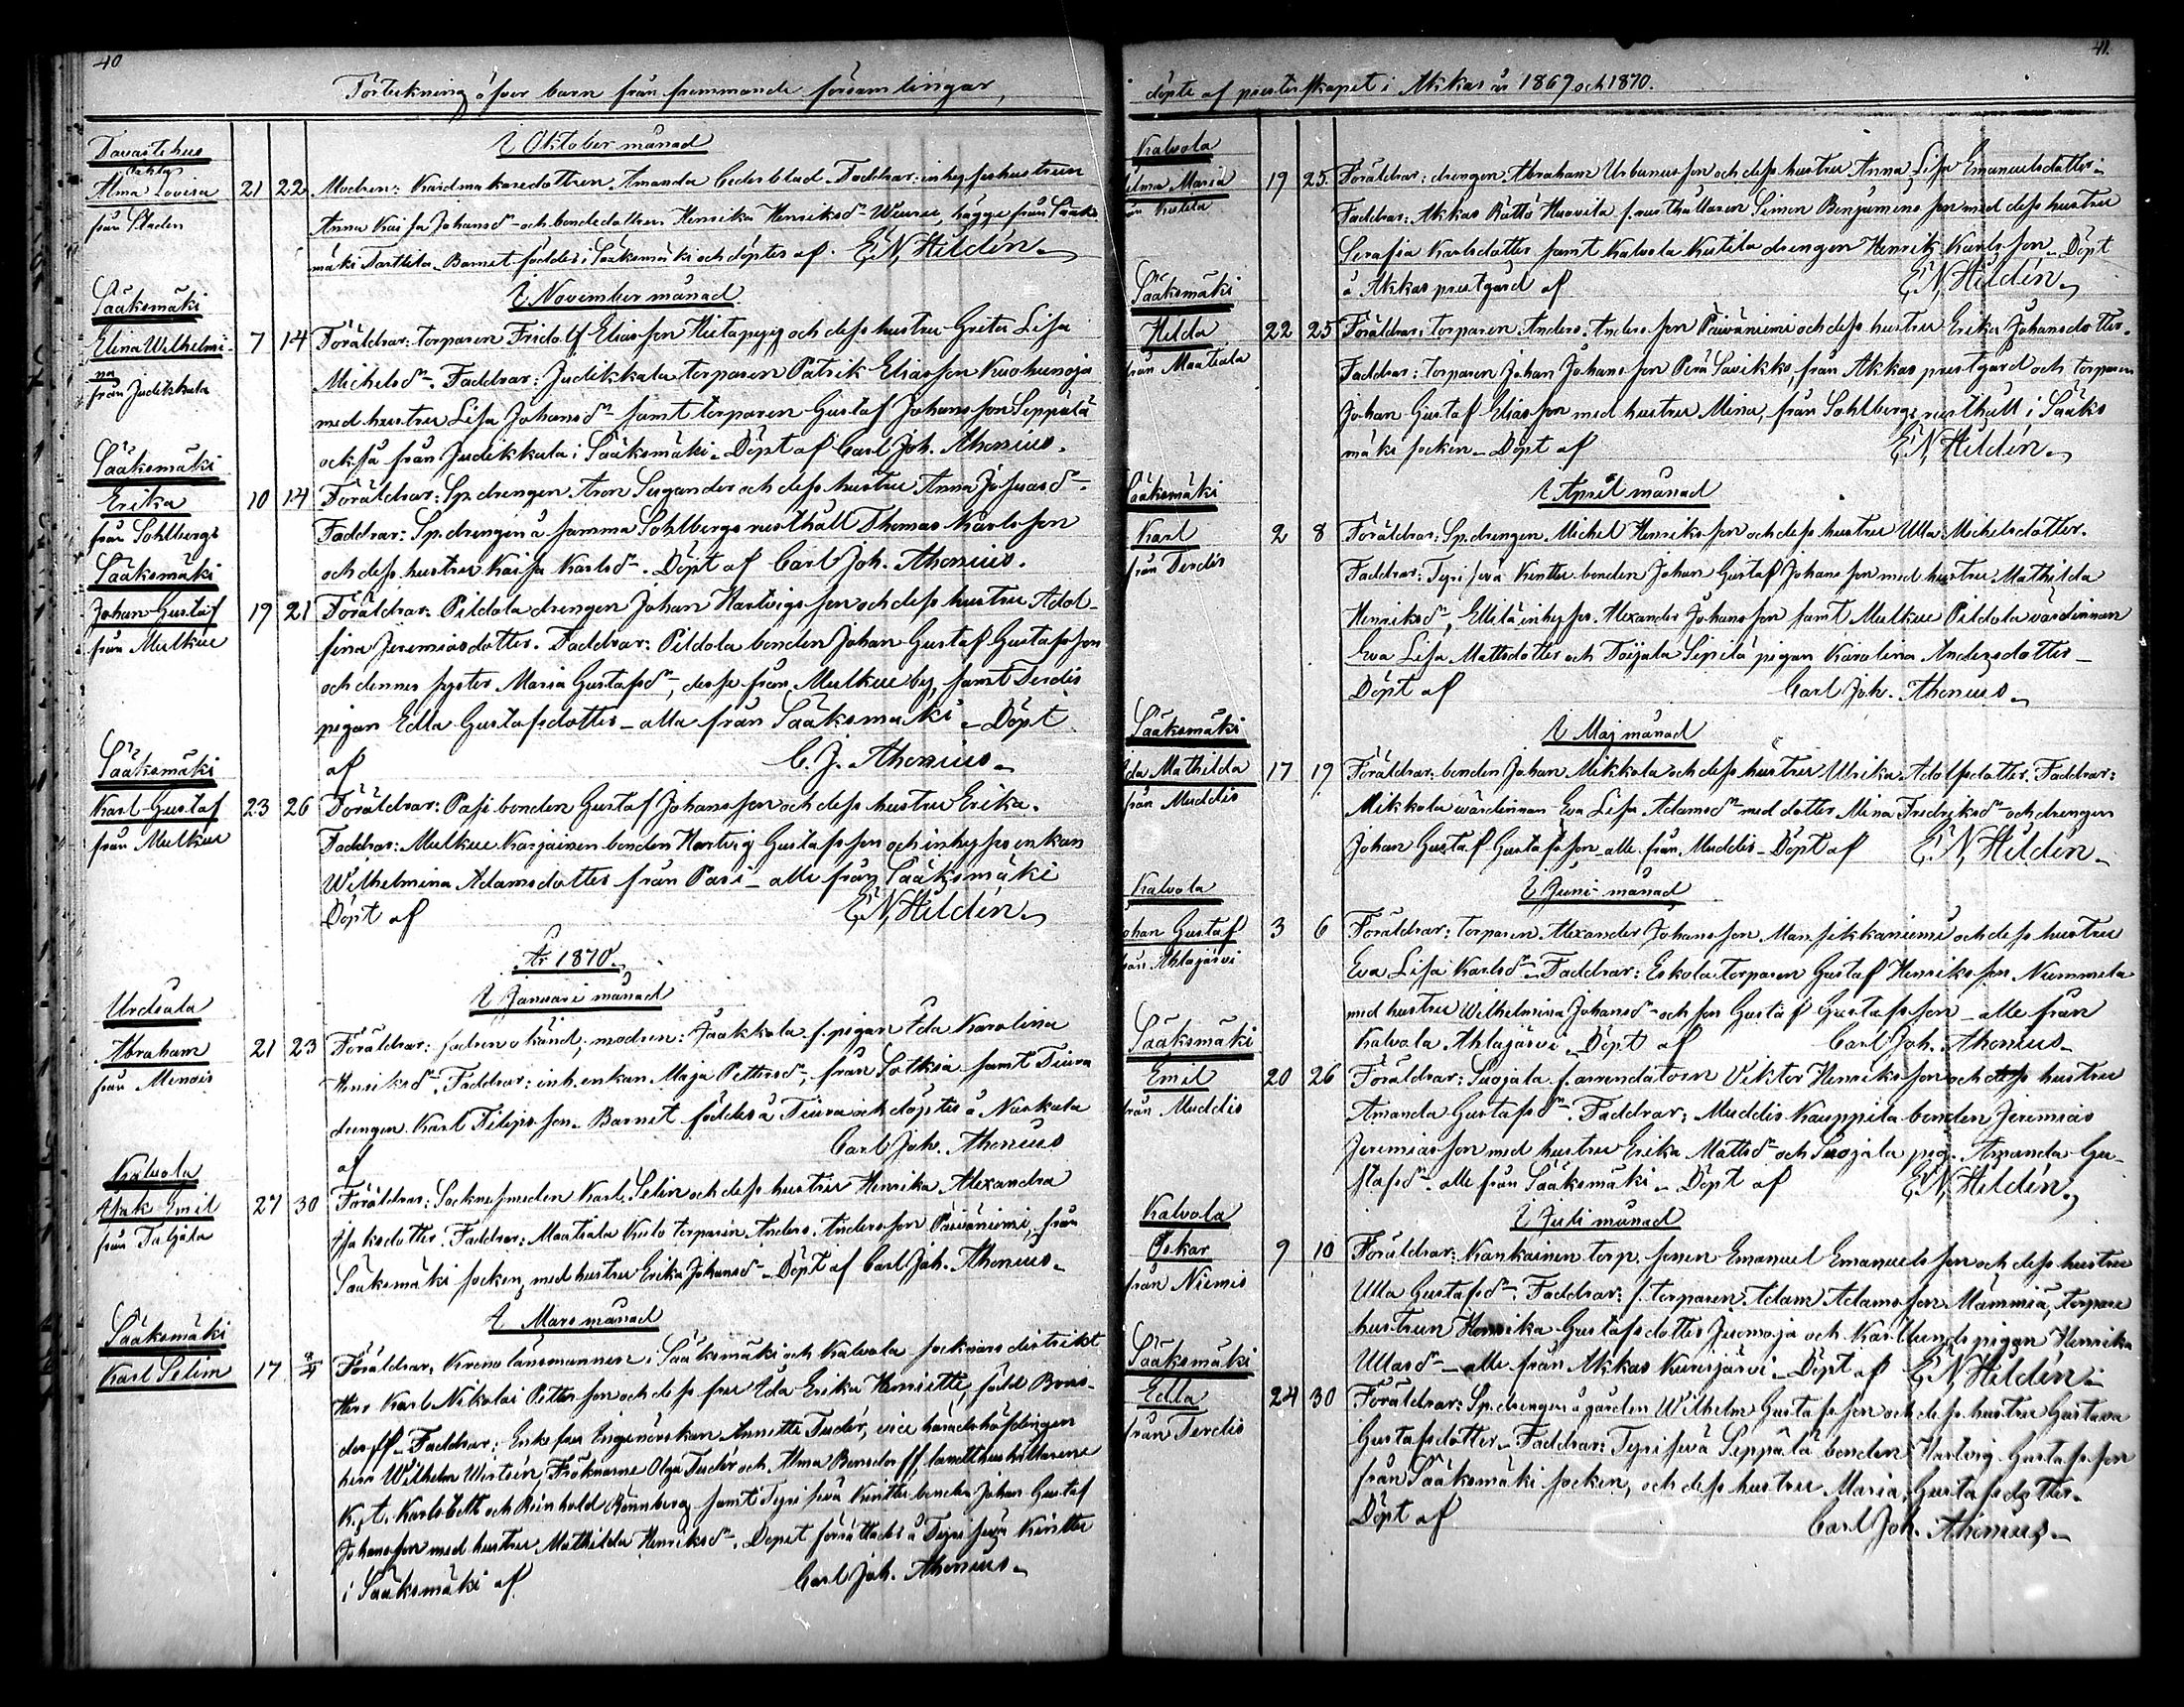 40
Förteckning öfver barn från främmande församlingar,
Tavastehus
I Oktober månad
Alma Lovisa 21 22 Modren: Kardmakaredottren Amanda Cederblad. Faddrar: inhyseshustrun
från Staden
Anna Kaisa Johansdr och bondedottren Henrika Henriksdr Weurei, bägge från Sääks-
mäki Tarttila. Barnet föddes i Sääksmäki och döptes af E. N. Hildén.
Sääksmäki
I November månad
Elina Wilhelmi- 7 14 Föräldrar: torparen Fridolf Eliasson Hietapyy och dess hustru Greta Lisa
na
från Judikkala
Michelsdr. Faddrar: Judikkala torparen Patrik Eliasson Kuohunoja
med hustru Lisa Johansdr samt torparen Gustaf Johansson Seppälä
också från Judikkala i Sääksmäki. Döpt af Carl Joh. Ahonius.
Sääksmäki
Erika 10 14 Föräldrar: Sp.drengen Aron Sugander och dess hustru Anna Josuasdr
från Sohlbergs
Faddrar: Sp.drengen å samma Sohlbergs rusthåll Thomas Karlsson
och dess hustru Kaisa Karlsdr. Döpt af Carl Joh. Ahonius.
Sääksmäki
Johan Gustaf 19 21 Föräldrar: Pildola drengen Johan Hartvigsson och dess hustru Adol-
från Mulkue
fina Jeremiasdotter. Faddrar: Pildola bonden Johan Gustaf Gustafsson
och dennes syster Maria Gustafsdr, desse från Mulkue by, samt Terdis
pigan Edla Gustafsdotter – alla från Sääksmäki – Döpt
af C. J. Ahonius.
Sääksmäki
Karl Gustaf 23 26 Föräldrar: Pasi bonden Gustaf Johansson och dess hustru Erika.
från Mulkue
Faddrar: Mulkue Karjainen bonden Hartvig Gustafsson och inhyses enkan
Wilhelmina Adamsdotter från Pasi – alle från Sääksmäki
Döpt af E. N. Hildén.
År 1870.
I Januari månad
Urdiala
Abraham 21 23 Föräldrar: fadren okänd; modren: Jaakkola f. pigan Ida Karolina
från Menois
Henriksdr. Faddrar: inh. enkan Maja Pettersdr, från Sotkia samt Tiura
drengen Karl Filipsson. Barnet föddes å Tiura och döptes å Naskala
af Carl Joh. Ahonius
Kalvola
Isak Emil 27 30 Föräldrar: Sockne smeden Karl Selin och dess hustru Henrika Alexandra
från Taljala
Isaksdotter. Faddrar: Maatiala Kulo torparen Anders Andersson Päiväniemi, från
Sääksmäki socken, med hustru Erika Johansdr – Döpt af Carl Joh. Ahonius.
I Mars månad
Sääksmäki
Karl Selim 17 Föräldrar, Krono länsmannen i Sääksmäki och Kalvola sócknars distrikt
Herr Karl Nikolai Pettersson och dess fru Ida Erika Henriette, född Bons-
dorff. Faddrar: Enkefru Ingeniörskan Annette Tudér, vice häradshöfdingen
herr Wilhelm Wirtzén, Fröknarne Olga Tudér och Alma Bonsdorff, landthushållarene
K. t. Karlstett och Reinhold Rönnberg samt Tyrisevä Kinttu bonden Johan Gustaf
Johansson med hustru Mathilda Henriksdr. Dopet förrättades å Tyrisevä Kinttu
i Sääksmäki af Carl Joh. Ahonius.
41.
döpte af presterskapet i Akkas år 1869 och 1870.
Kalvola
ilma Maria 19 25. Föräldrar: drengen Abraham Urbanusson och dess hustru Anna Lisa Emanuelsdotter.
Faddrar: Akkas Rättö Huovila f. rusthållaren Simon Benjaminsson med dess hustru
Serafia Karlsdotter samt Kalvola Kutila drengen Henrik Karlsson. Döpt
å Akkas prestgård af E. N. Hildén.
Sääksmäki
Hilda 22 25 Föräldrar: torparen Anders Andersson Päiväniemi och dess hustru Erika Johansdotter.
från Maatiala
Faddrar: torparen Johan Johansson Perä Savikko, från Akkas prestgård och torparen
Johan Gustaf Eliasson med hustru Mina, från Sohlbergs rusthåll i Sääks
mäki socken. Döpt af E. N. Hildén.
I April månad
Sääksmäki
Karl 2 8 Föräldrar: Sp.drengen Michel Henriksson och dess hustru Ulla Michelsdotter.
från Terdis
Faddrar: Tyrisevä Kinttu bonden Johan Gustaf Johansson med hustru Mathilda
Henriksdr, Ellilä inhyses Alexander Johansson samt Mulkue Pildola värdinnan
Eva Lisa Mattsdotter och Toijala Sipilä pigan Karolina Andersdotter –
Döpt af Carl Joh. Ahonius.
Sääksmäki
I Maj månad
Ida Mathilda 17 19 Föräldrar: bonden Johan Mikkola och dess hustru Ulrika Adolfsdotter. Faddrar:
från Muddis
Mikkola värdinnan Eva Lisa Adamsdr med dotter Mina Fredriksdr och drengen
Johan Gustaf Gustafsson – alle från Muddis – Döpt af E. N. Hildén.
Kalvola
I Juni månad
ohan Gustaf 3 6 Föräldrar: torparen Alexander Johansson Mansikkaniemi och dess hustru
från Ahlajärvi
Eva Lisa Karlsdr – Faddrar: Eskola torparen Gustaf Henriksson Nummela
med hustru Wilhelmina Johansdr och son Gustaf Gustafsson – alle från
Kalvola Ahlajärvi – Döpt af Carl Joh. Ahonius.
Sääksmäki
Emil 20 26 Föräldrar: Suojala f. arrendatorn Viktor Henriksson och dess hustru
från Muddis
Amanda Gustafsdr. Faddrar: Muddis Kauppila bonden Jeremias
Jeremiasson med hustru Erika Mattsdr och Suojala pig. Amanda Gu-
stafsdr – alle från Sääksmäki – Döpt af E. N. Hildén.
Kalvola
I Juli månad
Oskar 9 10 Föräldrar: Kankainen torp. sonen Emanuel Emanuelsson och dess hustru
från Niemis
Ulla Gustafsdr. Faddrar: f. torparen Adam Adamsson Mämmiä, torpare
hustrun Henrika Gustafsdotter Juomoja och Karllunds pigan Henrika
Ullasdr – alle från Akkas Kurisjärvi – Döpt af E. N. Hildén.
Sääksmäki
Edla 24 30 Föräldrar: Sp.drengen å gården Wilhelm Gustafsson och dess hustru Gustava
från Terdis
Gustafsdotter. Faddrar: Tyrisevä Seppälä bonden Hartvig Gustafsson
från Sääksmäki socken, och dess hustru Maria Gustafsdotter.
Döpt af Carl Joh. Ahonius.